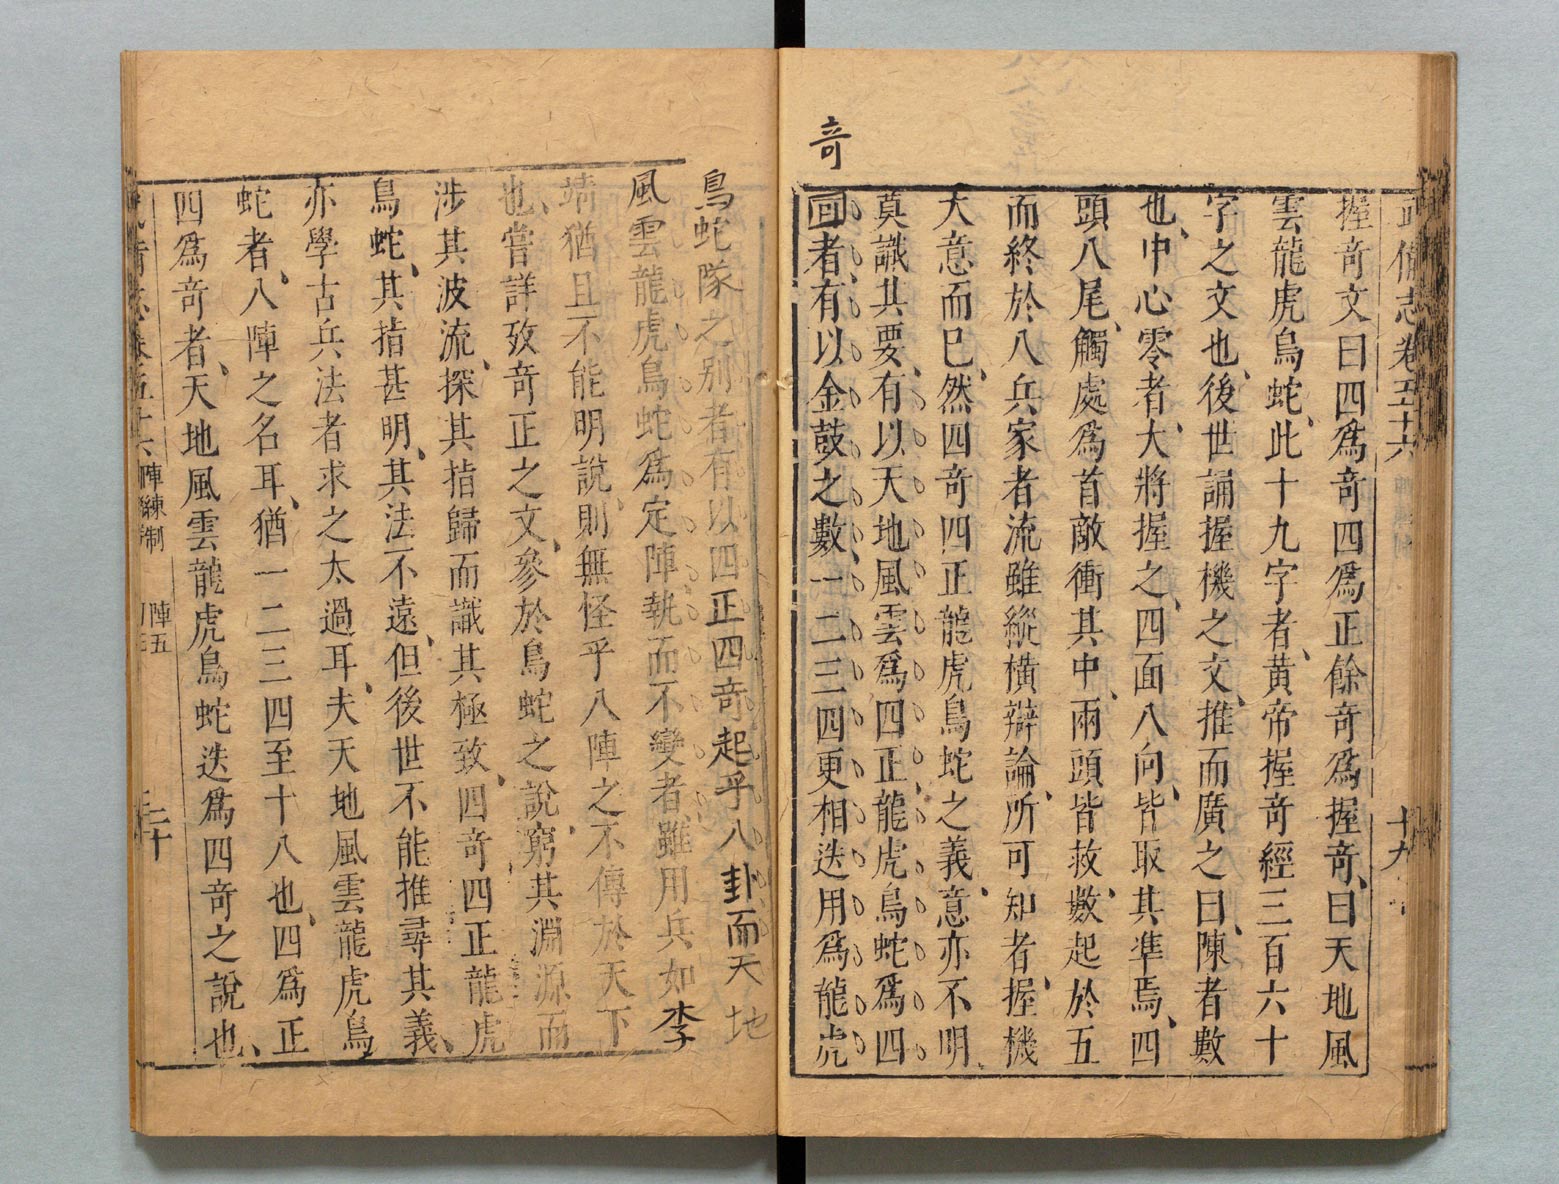 武備志卷五十六
十九
握奇文曰四爲奇四爲正餘奇爲握奇曰天地風
雲龍虎鳥蛇此十九字者黄帝握奇經三百六十
字之文也後世誦握機之文推而廣之曰陳者數
也中心零者大將握之四面八向皆取其凖焉四
頭八尾觸處爲首敵衝其中兩頭皆救數起於五
而終於八兵家者流雖縱横辯論所可知者握機
大意而已然四奇四正龍虎鳥蛇之義意亦不明
莫識其要有以天地風雲爲四正龍虎鳥蛇爲四
奇
回者有以金鼓之數一二三四更相迭用爲龍虎
鳥蛇隊之别者有以四正四奇起乎八卦而天地
風雲龍虎鳥蛇爲定陣執而不變者雖用兵如李
靖猶且不能明說則無怪乎八陣之不傳於天下
也嘗詳攷奇正之文參於鳥蛇之說窮其淵源而
涉其波流探其指歸而識其極致四奇四正龍虎
鳥蛇其指甚明其法不遠但後世不能推尋其義
亦學古兵法者求之太過耳夫天地風雲龍虎鳥
蛇者八陣之名耳猶一二三四至十八也四爲正
四爲奇者天地風雲龍虎鳥蛇迭爲四奇之說也
卷五十六 陣練制 陣五 二十